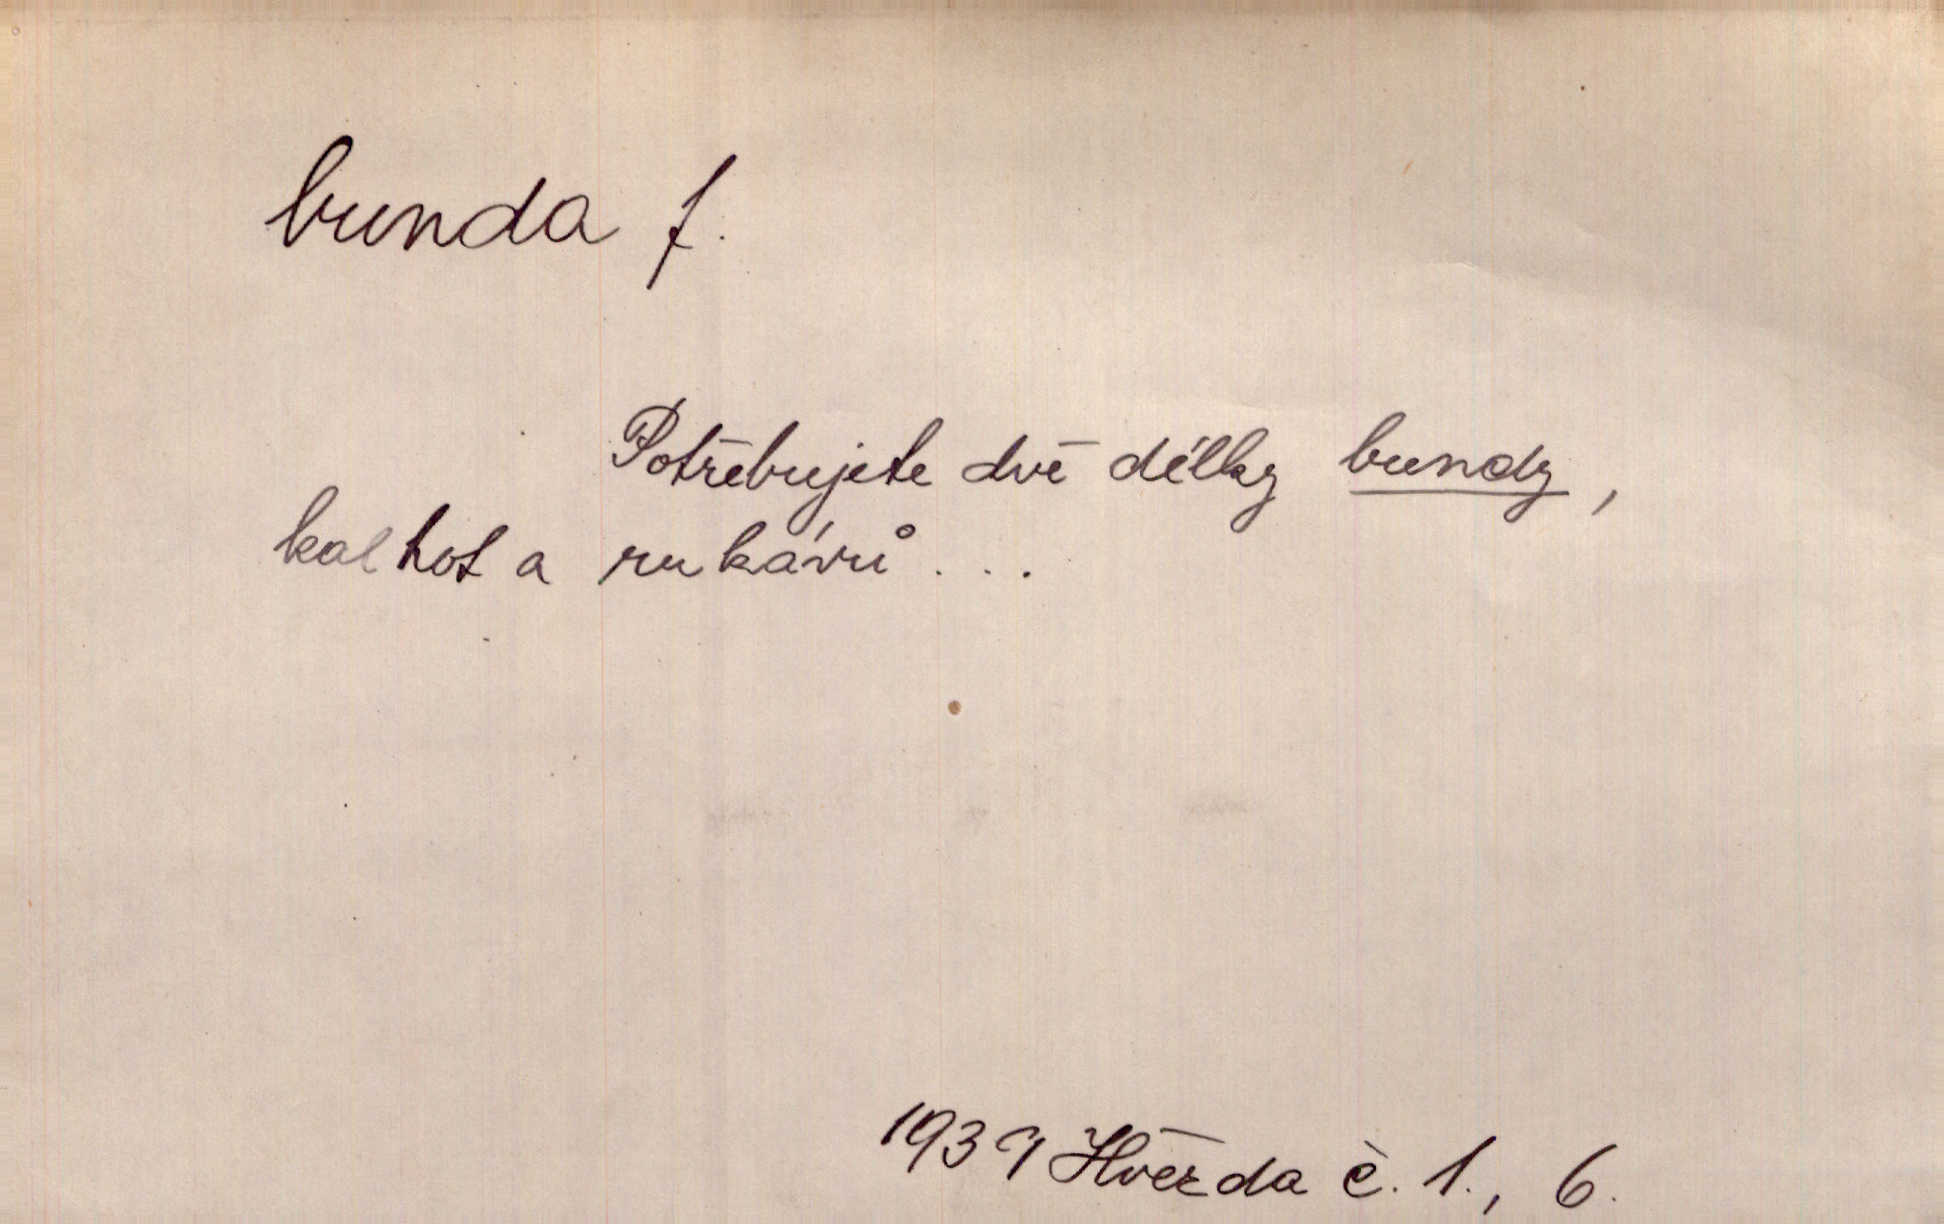 bunda f.
Potřebujete dvě délky bundy,
kalhot a rukávů ...
1939 Hvězda č. 1., 6.